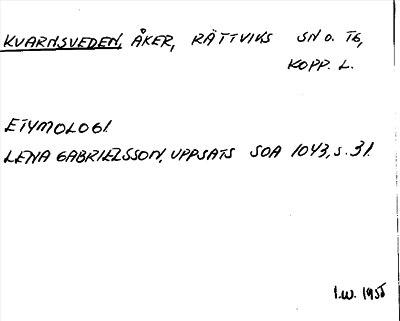 KVARNSVEDEN, ÅKER, RÄTTVIKS SN O. TG,
KOPP. L.
ETYMOLOGI.
LENA GABRIELSSON, UPPSATS SOA 1043, S. 31.
I.W. 1955